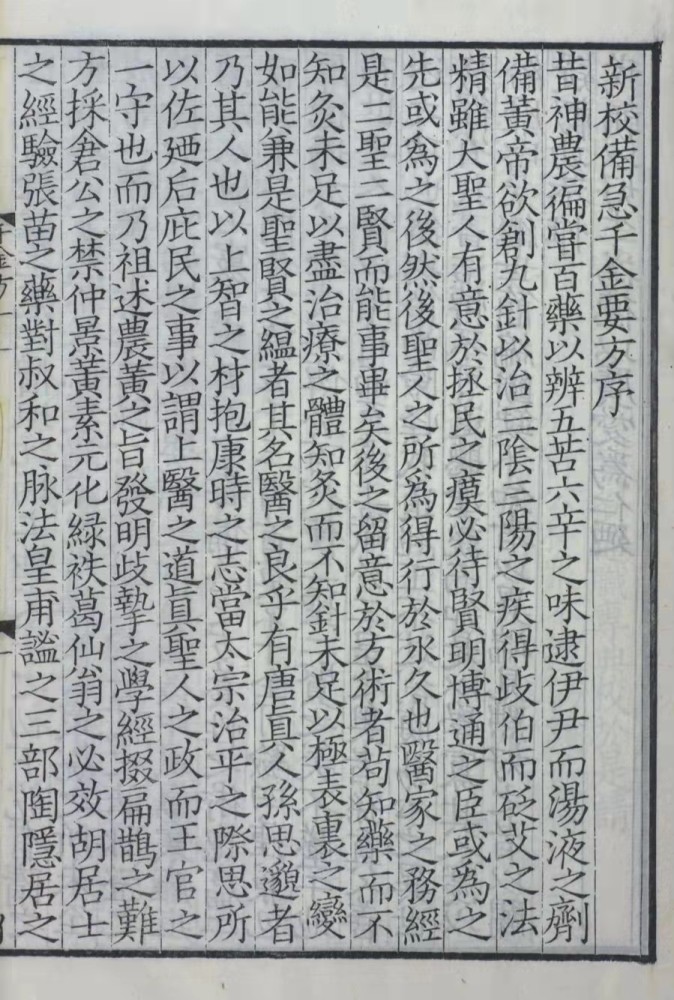 新校備急千金要方序
昔神農徧嘗百藥以辨五苦六辛之味逮伊尹而湯液之劑
備黃帝欲創九針以治三陰三陽之疾得歧伯而砭艾之法
精雖大聖人有意於拯民之瘼必待賢明博通之臣或爲之
先或爲之後然後聖人之所爲得行於永久也醫家之務經
是二聖二賢而能事畢矣後之留意於方術者苟知藥而不
知灸未足以盡治療之體知灸而不知針未足以極表裏之變
如能兼是聖賢之緼者其名醫之良乎有唐眞人孫思邈者
乃其人也以上智之材抱康時之志當太宗治平之際思所
以佐廼后庇民之事以謂上醫之道眞聖人之政而王官之
一守也而乃祖述農黃之旨發明歧摯之學經掇扁鵲之難
方採倉公之禁仲景黃素元化緑袟葛仙翁之必效胡居士
之經驗張苗之藥對叔和之脉法皇甫謐之三部陶隱居之
千金方一